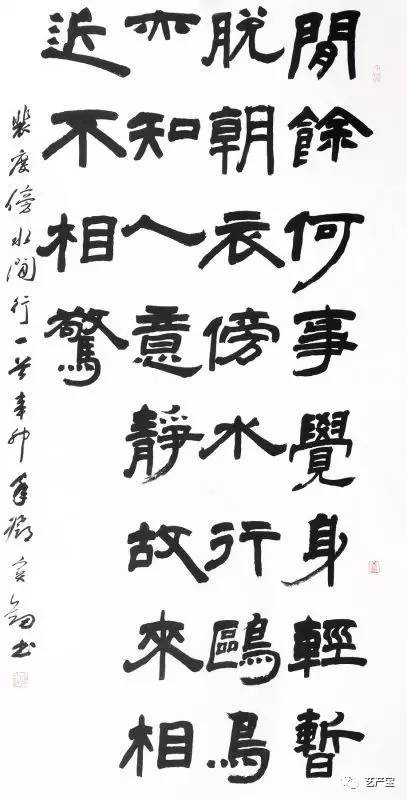 閒餘何事覺身輕暫
脫朝衣傍水行鷗鳥
亦知人意靜故來相
近不相驚
裴度傍水閒行一首辛卯年鄧宝劍书
艺产宝